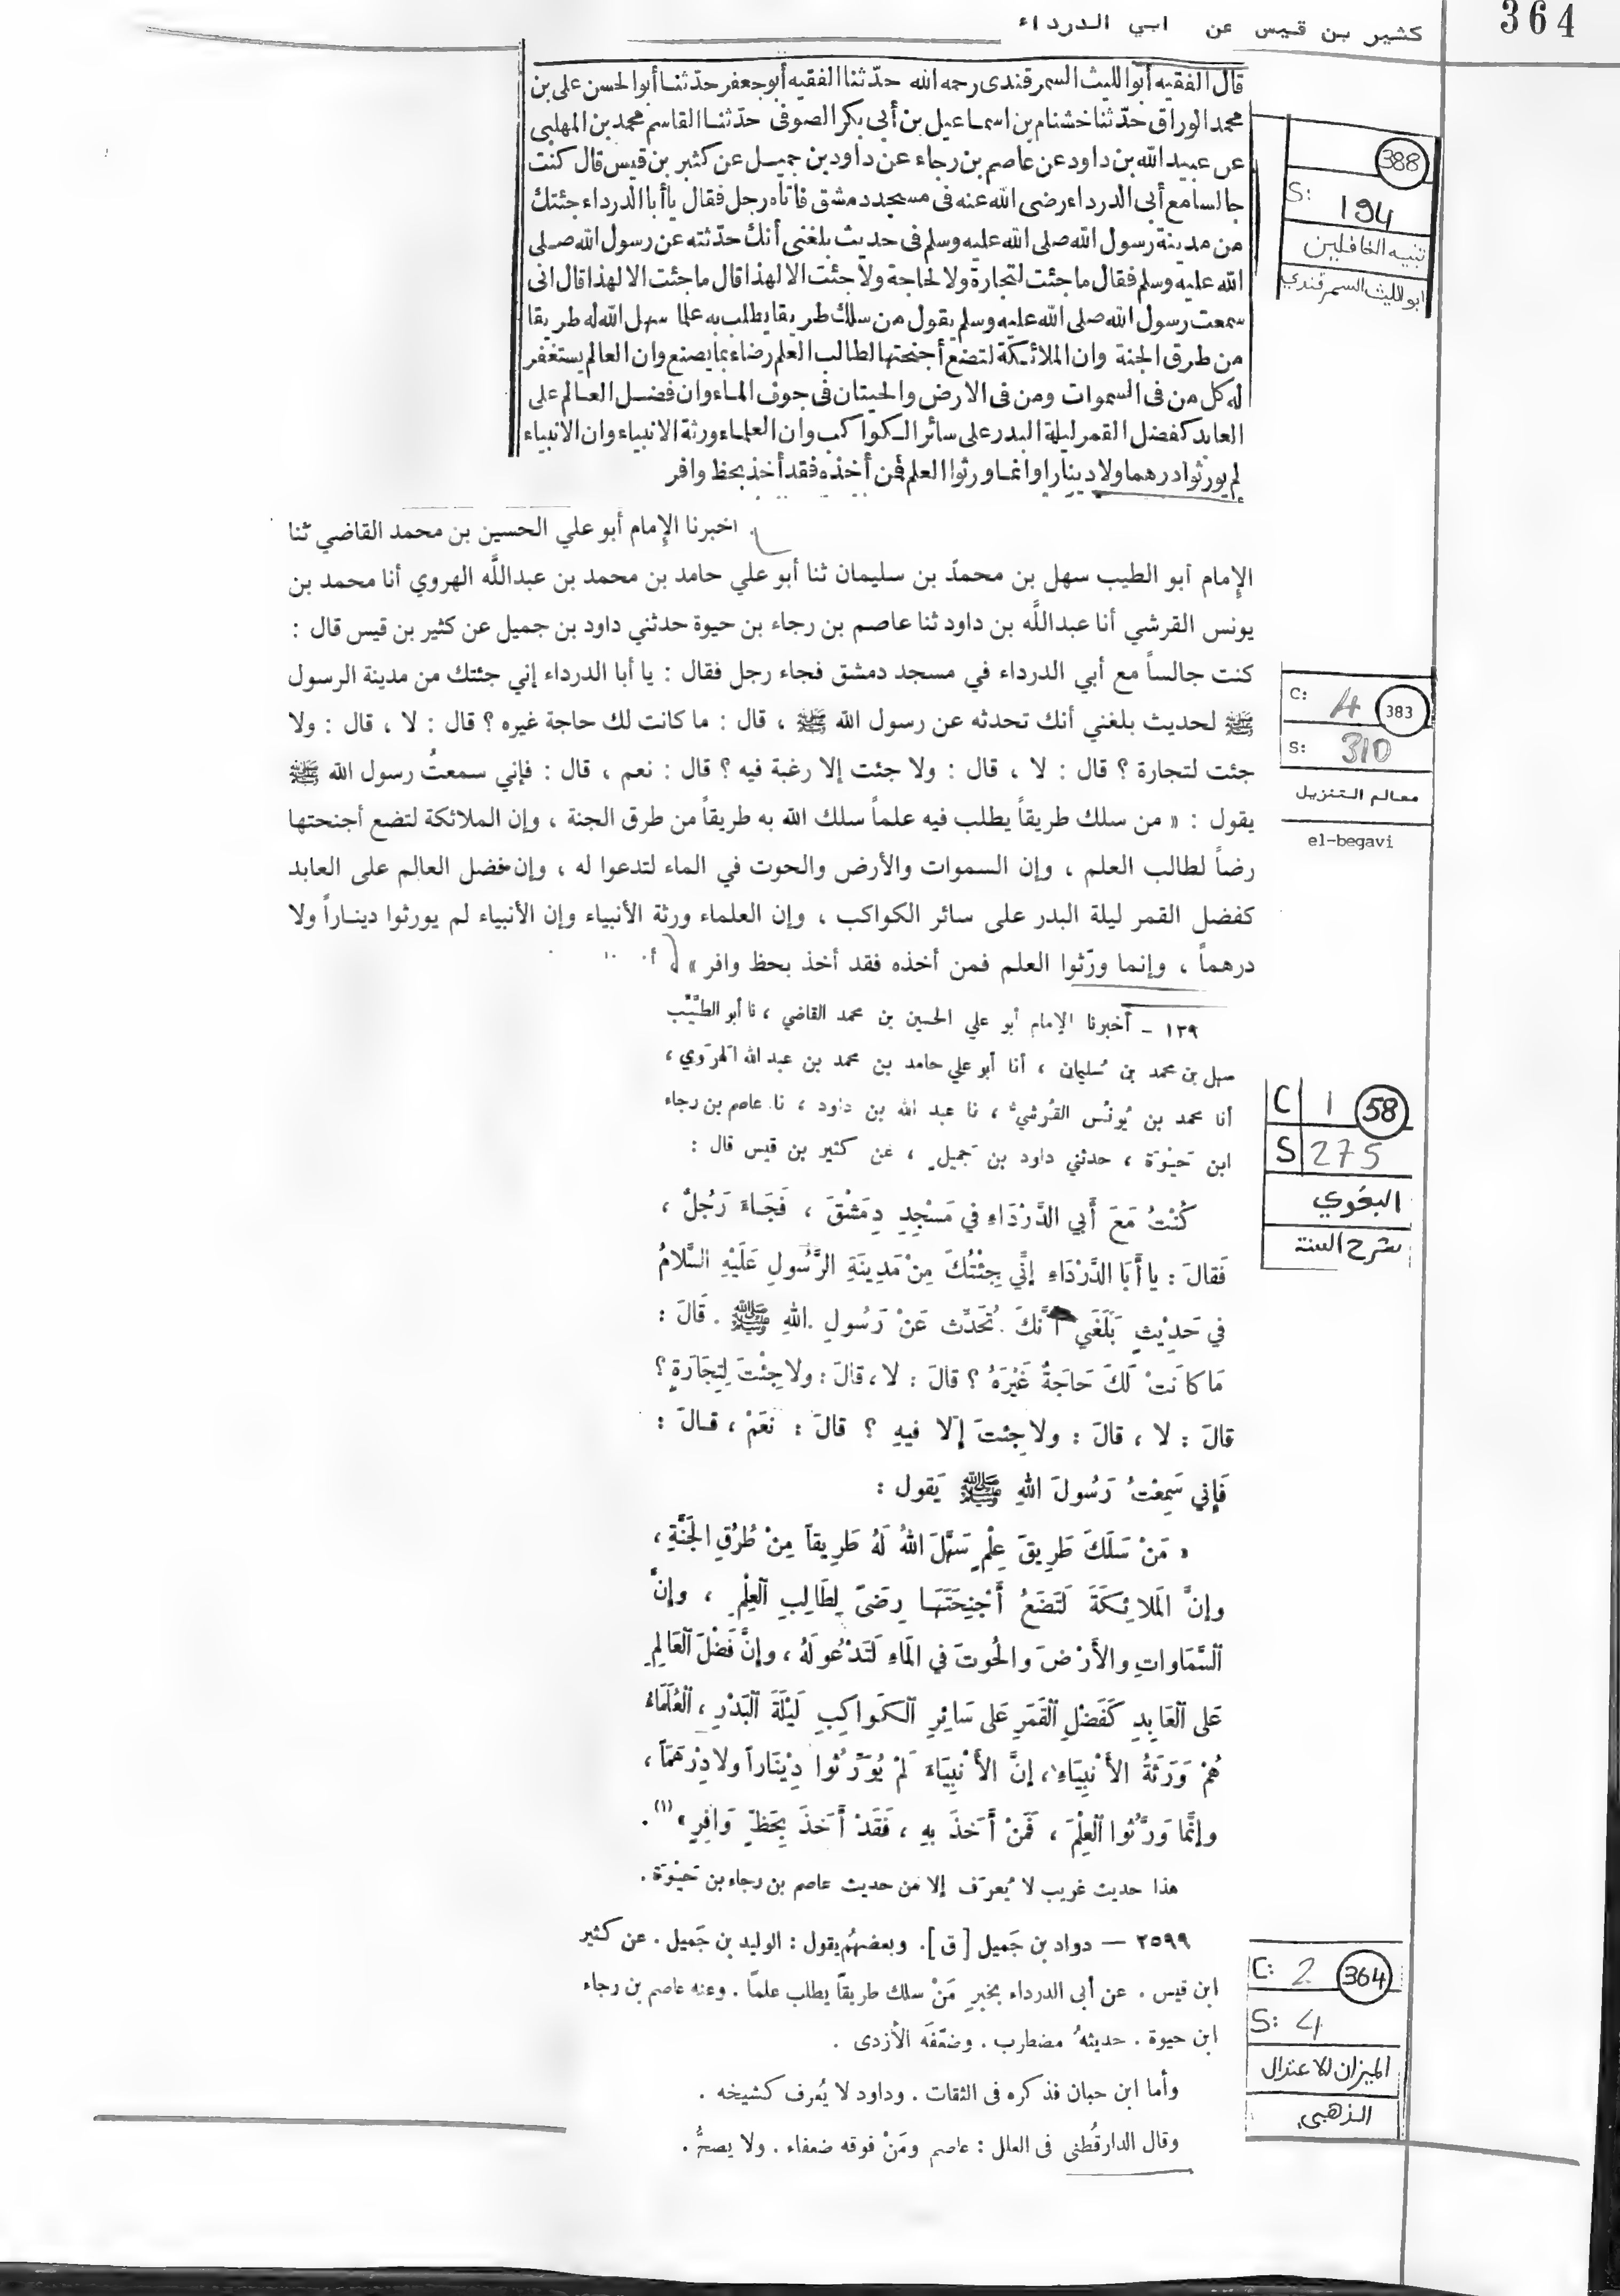 364
كثير بن قيس عن ابي الدرداء
قال الفقيه أبو الليث السمرقندى رحمه الله حدّثنا الفقيه أبو جعفر حدّثنا أبوا لحسن على بن
محمد الوراق حدّثنا خشنام بن اسماعيل بن أبى بكر الصوفى حدّثنا القاسم محمد بن المهلبى
عن عبيد الله بن داود عن عاصم بن رجاء عن داود بن جميل عن كثير بن قيس قال كنت
جالسا مع أبى الدرداء رضى الله عنه فى مسجد دمشق فاتاه رجل فقال يا أبا الدرداء جئتك
من مدينة رسول الله صلى الله عليه وسلم فى حديث بلغنى أنك حدّثته عن رسول الله صلى
الله عليه وسلم فقال ما جئت لتجارة ولا لحاجة ولا جئت الا لهذا قال ما جئت الا لهذا قال انى
سمعت رسول الله صلى الله عليه وسلم يقول من سلك طريقا يطلب به علما سهل الله له طريقا
من طرق الجنة وان الملائكة لتضع أجنحتها لطالب العلم رضاء بما يصنع وان العالم يستغفر
له كل من فى السموات ومن فى الارض والحيتان فى جوف الماء وان فضل العالم على
العابد كفضل القمر ليلة البدر على سائر الكواكب وان العلماء ورثة الانبياء وان الانبياء
لم يورثوا درهما ولا دينارا وانما ورثوا العلم فمن أخذه فقد أخذ بحظ وافر
388
S: 194
تنبيه الغافلين
ابو الليث السمرقندي
اخبرنا الإمام أبو علي الحسين بن محمد القاضي ثنا
الإمام أبو الطيب سهل بن محمدّ بن سليمان ثنا أبو علي حامد بن محمد بن عبداللَّه الهروي أنا محمد بن
يونس القرشي أنا عبداللَّه بن داود ثنا عاصم بن رجاء بن حيوة حدثني داود بن جميل عن كثير بن قيس قال :
كنت جالساً مع أبي الدرداء في مسجد دمشق فجاء رجل فقال : يا أبا الدرداء إني جئتك من مدينة الرسول
ﷺ لحديث بلغني أنك تحدثه عن رسول الله ﷺ ، قال : ما كانت لك حاجة غيره ؟ قال : لا ، قال : ولا
جئت لتجارة ؟ قال : لا ، قال : ولا جئت إلا رغبة فيه ؟ قال : نعم ، قال : فإني سمعتُ رسول الله ﷺ
يقول : « من سلك طريقاً يطلب فيه علماً سلك الله به طريقاً من طرق الجنة ، وإن الملائكة لتضع أجنحتها
رضاً لطالب العلم ، وإن السموات والأرض والحوت في الماء لتدعوا له ، وإن فضل العالم على العابد
كفضل القمر ليلة البدر على سائر الكواكب ، وإن العلماء ورثة الأنبياء وإن الأنبياء لم يورثوا ديناراً ولا
درهماً ، وإنما ورّثوا العلم فمن أخذه فقد أخذ بحظ وافر »
C: 4 383
S: 310
معالم التنزيل
el-begavi
١٢٩ ـ أخبرنا الإمام أبو علي الحسين بن محمد القاضي ، نا أبو الطيِّب
سهل بن محمد بن سُليمان ، أنا أبو علي حامد بن محمد بن عبد الله الهرَوي ،
أنا محمد بن يُونُس القُرشيُّ ، نا عبد الله بن داود ، نا عاصم بن رجاء
ابن حَيْوَة ، حدثني داود بن جَميل ، عن كثير بن قيس قال :
كُنْتُ مَعَ أَبِي الدَّرْدَاءِ فِي مَسْجِدِ دِمَشْقَ ، فَجَاءَ رَجُلٌ ،
فَقَالَ : يا أَبَا الدَّرْدَاءِ إنِّي جِئْتُكَ مِنْ مَدِينَةِ الرَّسُولِ عَلَيْهِ السَّلامُ
في حَدِيْثٍ بَلَغَنِي أَنَّكَ تُحَدِّث عَنْ رَسُولِ اللهِ ﷺ . قَالَ :
مَا كَانَتْ لَكَ حَاجَةٌ غَيْرَهُ ؟ قالَ : لا ، قالَ : ولا جِئْتَ لِتِجَارَةٍ ؟
قالَ : لا ، قالَ : ولا جِئتَ إلَّا فيهِ ؟ قالَ : نَعَمْ ، قالَ :
فَإِني سَمِعْتُ رَسُولَ اللهِ ﷺ يَقول :
« مَنْ سَلَكَ طَرِيقَ عِلْمٍ سَهَّلَ اللهُ لَهُ طَرِيقاً مِنْ طُرُقِ الجَنَّةِ ،
وإنَّ المَلائِكَةَ لَتَضَعُ أَجْنِحَتَهَا رِضَىً لِطَالِبِ العِلْمِ ، وإنَّ
السَّمَاواتِ والأَرْضَ والحُوتَ في المَاءِ لَتَدْعُو لَهُ ، وإنَّ فَضْلَ العَالِمِ
عَلى العَابِدِ كَفَضْلِ القَمَرِ عَلى سَائِرِ الكَواكِبِ لَيْلَةَ البَدْرِ ، العُلَمَاءُ
هُمْ وَرَثَةُ الأَنْبِيَاءِ ، إنَّ الأَنْبِيَاءَ لَمْ يُوَرِّثُوا دِيْنَاراً ولا دِرْهَمَاً ،
وإنَّمَا وَرَّثُوا العِلْمَ ، فَمَنْ أَخَذَ بهِ ، فَقَدْ أَخَذَ بِحَظّ وَافِرٍ » (١) .
هذا حديث غريب لا يُعرَف إلا من حديث عاصم بن رجاء بن حَيْوَة .
C 1 58
S 275
البغوي
شرح السنة
٢٥٩٩ — دواد بن جَميل [ ق ] . وبعضهُم يقول : الوليد بن جَميل . عن كثير
ابن قيس . عن أبى الدرداء بخبرِ مَنْ سلك طريقًا يطلب علمًا . وعنه عاصم بن رجاء
ابن حيوة . حديثهُ مضطرب . وضعّفَه الأزدى .
وأما ابن حبان فذكره فى الثقات . وداود لا يُعرف كشيخه .
وقال الدارقُطنى فى العلل : عاصم ومَنْ فوقه ضعفاء . ولا يصحُّ .
C: 2 364
S: 4
الميزان للاعتدال
الذهبي